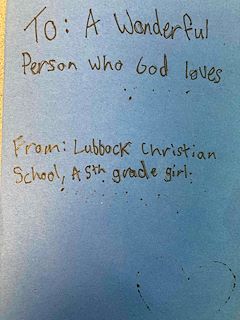 To: A Wonderful
Person who God loves
From: Lubbock Christian
School, A 5th grade girl.